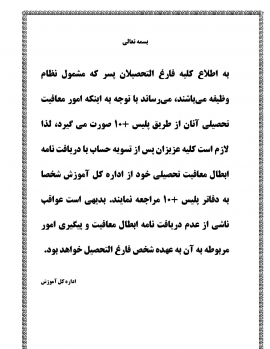 بسمه تعالی
به اطلاع کلیه فارغ التحصیلان پسر که مشمول نظام
وظیفه می‌باشند، می‌رساند با توجه به اینکه امور معافیت
تحصیلی آنان از طریق پلیس +۱۰ صورت می گیرد، لذا
لازم است کلیه عزیزان پس از تسویه حساب با دریافت نامه
ابطال معافیت تحصیلی خود از اداره کل آموزش شخصا
به دفاتر پلیس +۱۰ مراجعه نمایند. بدیهی است عواقب
ناشی از عدم دریافت نامه ابطال معافیت و پیگیری امور
مربوطه به آن به عهده شخص فارغ التحصیل خواهد بود.
اداره کل آموزش